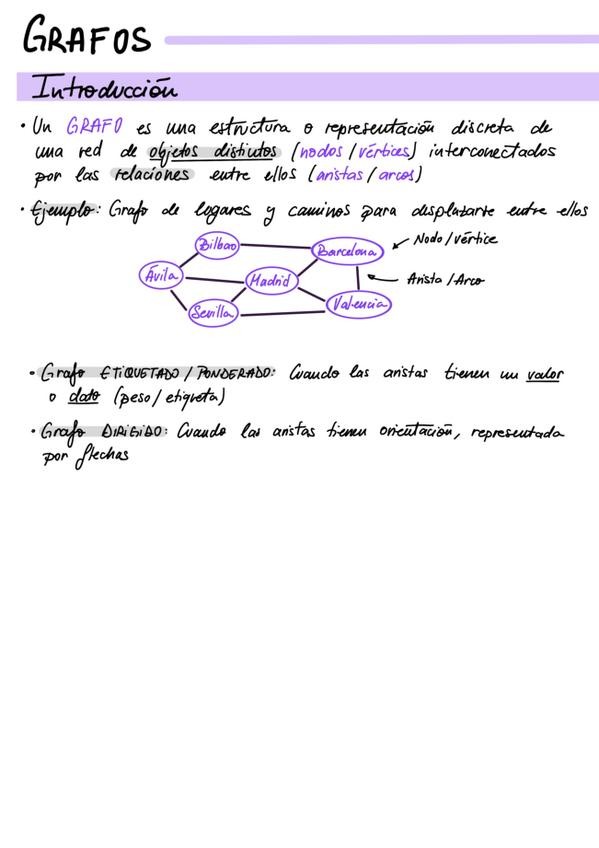 GRAFOS
Introducción
• Un GRAFO es una estructura o representación discreta de
una red de objetos distintos (nodos/vértices) interconectados
por las relaciones entre ellos (aristas/arcos)
• Ejemplo: Grafo de lugares y caminos para desplazarse entre ellos
Bilbao
Barcelona
Nodo/vértice
Ávila
Madrid
Arista/Arco
Sevilla
Valencia
• Grafo ETIQUETADO/PONDERADO: Cuando las aristas tienen un valor
o dato (peso/etiqueta)
• Grafo DIRIGIDO: Cuando las aristas tienen orientación, representada
por flechas